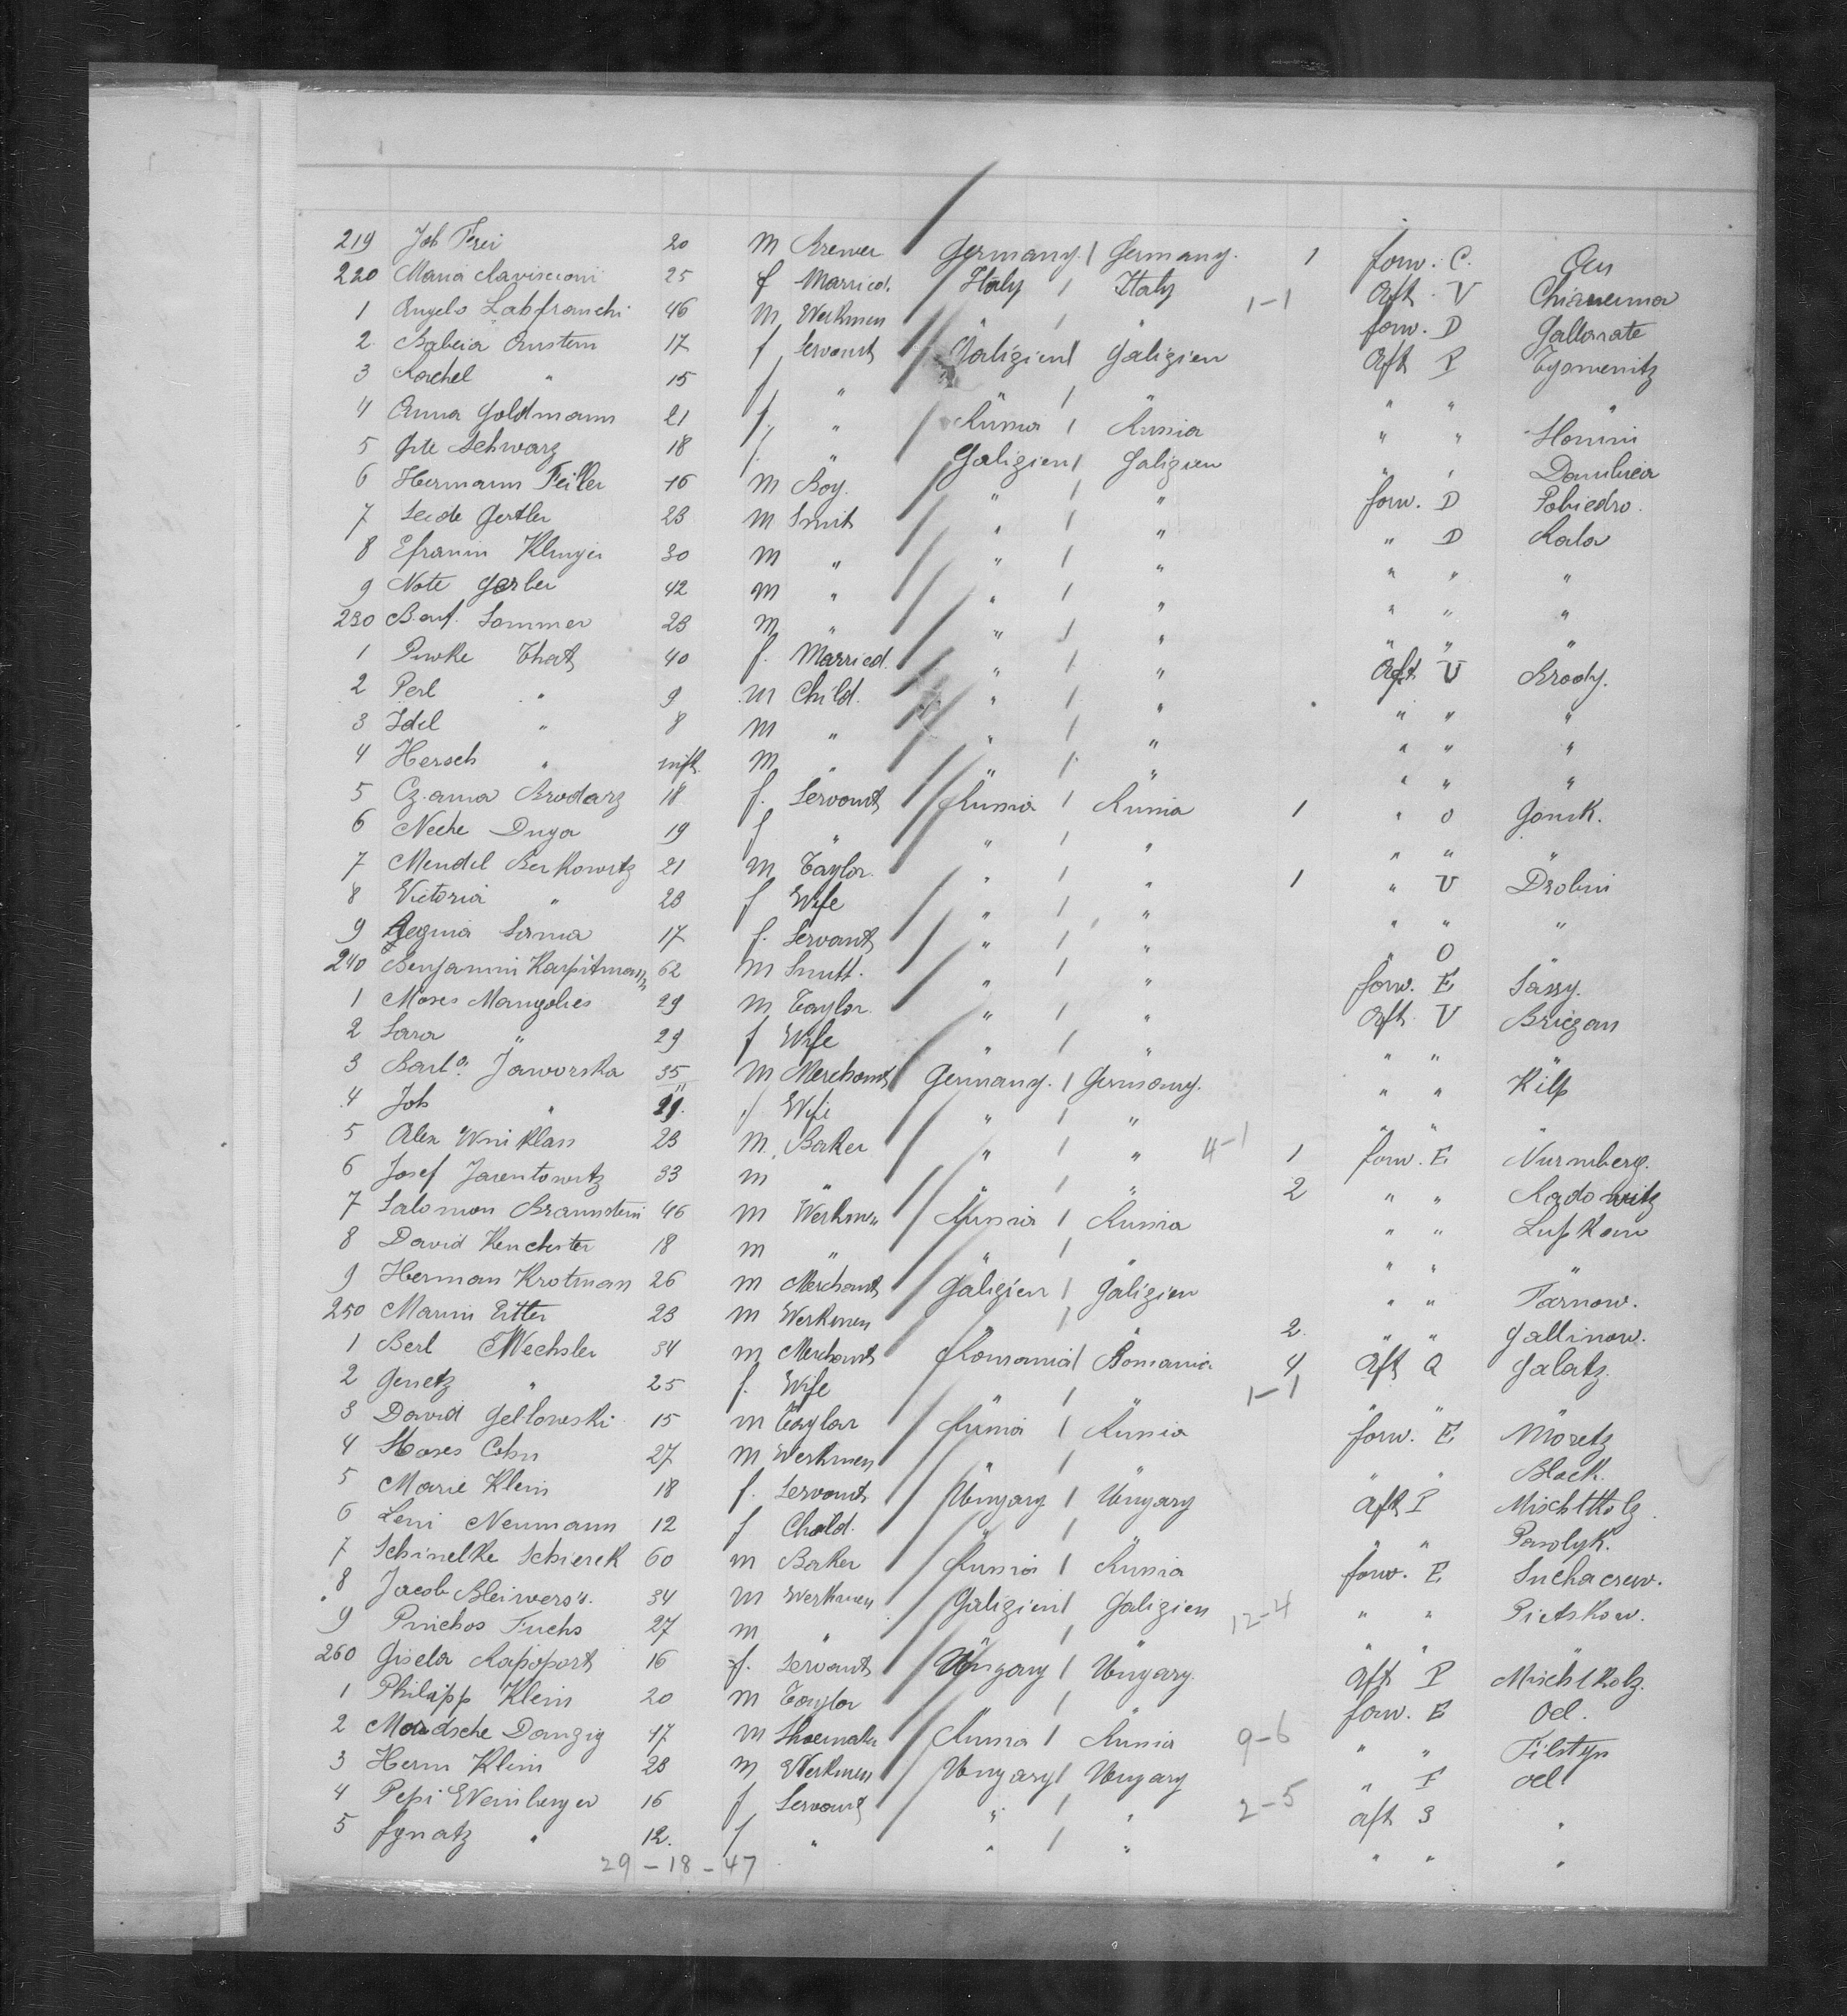 219 Joh Frei 20 m Brewer / Germany. / Germany. 1 forw. C. Aen
220 Maria Raviscioni 25 f Married. / Italy / Italy 1-1 Aft. V Chiavenna
1 Angelo Labfranchi 46 m Werkmen / " / " forw. D Gallarate
2 17 f Servant / Galizien / Galizien Aft P
3 Rachel " 15 f " / " / " " " "
4 Anna Goldmann 21 f. " / Russia / Russia " "
5 Gite Schwarz 18 f. " / Galizien / Galizien " "
6 Hermann Feiler 16 m Boy. / " / " forw. D Pobiedro.
7 Seide Gertler 23 m Smit / " / " " D Kala
8 Efraim Klinger 30 m " / " / " " " "
9 Note Gerber 42 m " / " / " " " "
230 Bert. Sommer 23 m " / " / " " " "
1 Piwke That 40 f. Married. / " / " Aft. V Brody.
2 Perl " 9 m Child. / " / " " " "
3 Idel " 8 m " / " / " " " "
4 Hersch " inft. m " / " / " " " "
5 Czarna Brodarz 18 f. Servant / Russia / Russia 1 " O Gonsk.
6 Neche Duga 19 f " / " / " " " "
7 Mendel Berkowitz 21 m Taylor. / " / " 1 " V Drobin
8 Victoria " 23 f Wife / " / " " " "
9 Serma 17 f. Servant / " / " " O
240 Benjamin Karpitmann 62 m Smitt. / " / " forw. E Sassy.
1 Moses Mangolies 29 m Taylor. / " / " Aft. V Briezan
2 Sara " 29 f Wife / " / " " "
3 Barb.a Jaworska 35 m Merchant / Germany. / Germany. " " Kilp
4 Joh " 29. f Wife / " / " " " "
5 Alex Winklass 23 m. Baker / " / " 4-1 1 forw. E Nurmberg.
6 Josef Jarentowitz 33 m " / " / " 2 " " Radowitz
7 Salomon Braunstein 46 m Werkmen / Russia / Russia " " Lupkow
8 David Kenchster 18 m " / " / " " " "
9 Herman Krotman 26 m Merchant / Galizien / Galizien " " Tarnow.
250 Mann Ritter 23 m Werkmen / " / " 2. " " Gallinow.
1 Berl Wechsler 34 m Merchant / Romania / Romania 4 Aft Q Galatz.
2 Genetz " 25 f. Wife / " / " 1-1 " "
3 David Gellowski 15 m Taylor / Russia / Russia forw. E Moretz
4 Moses Cohn 27 m Werkmen / " / " " " Block.
5 Marie Klein 18 f. Servant / Ungary / Ungary Aft P Mischltkolz.
6 Leni Neumann 12 f Child. / " / " " " Pawlyk.
7 Schinelke Schierek 60 m Baker / Russia / Russia forw. E Suchacrew.
8 Jacob Bleiweros. 34 m Werkmen / Galizien / Galizien 12-4 " " Pietskow.
9 Pinchos Fuchs 27 m " / " / " " " "
260 Gisela Rapoport 16 f. Servant / Ungary / Ungary. Aft P Mischlkolz.
1 Philipp Klein 20 m Taylor / " / " forw. E Oel.
2 Mordsche Danzig 47 m Shoemaker / Russia / Russia 9-6 " " Filstyn
3 Herm Klein 28 m Werkmen / Ungary / Ungary " F Oel
4 Pepi Weinberger 16 f Servant / " / " 2-5 aft S "
5 Ignatz " 12. f " / " / " " " "
29-18-47